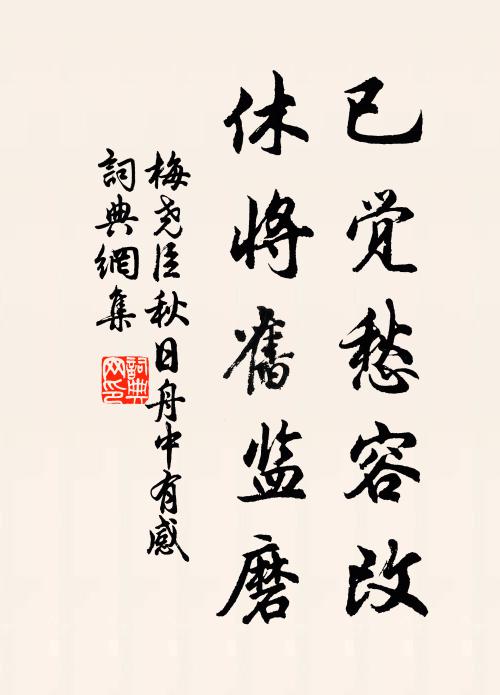 已觉愁容改
休将舊监磨
梅尧臣秋日舟中有感
詞典網集
詞典
网印